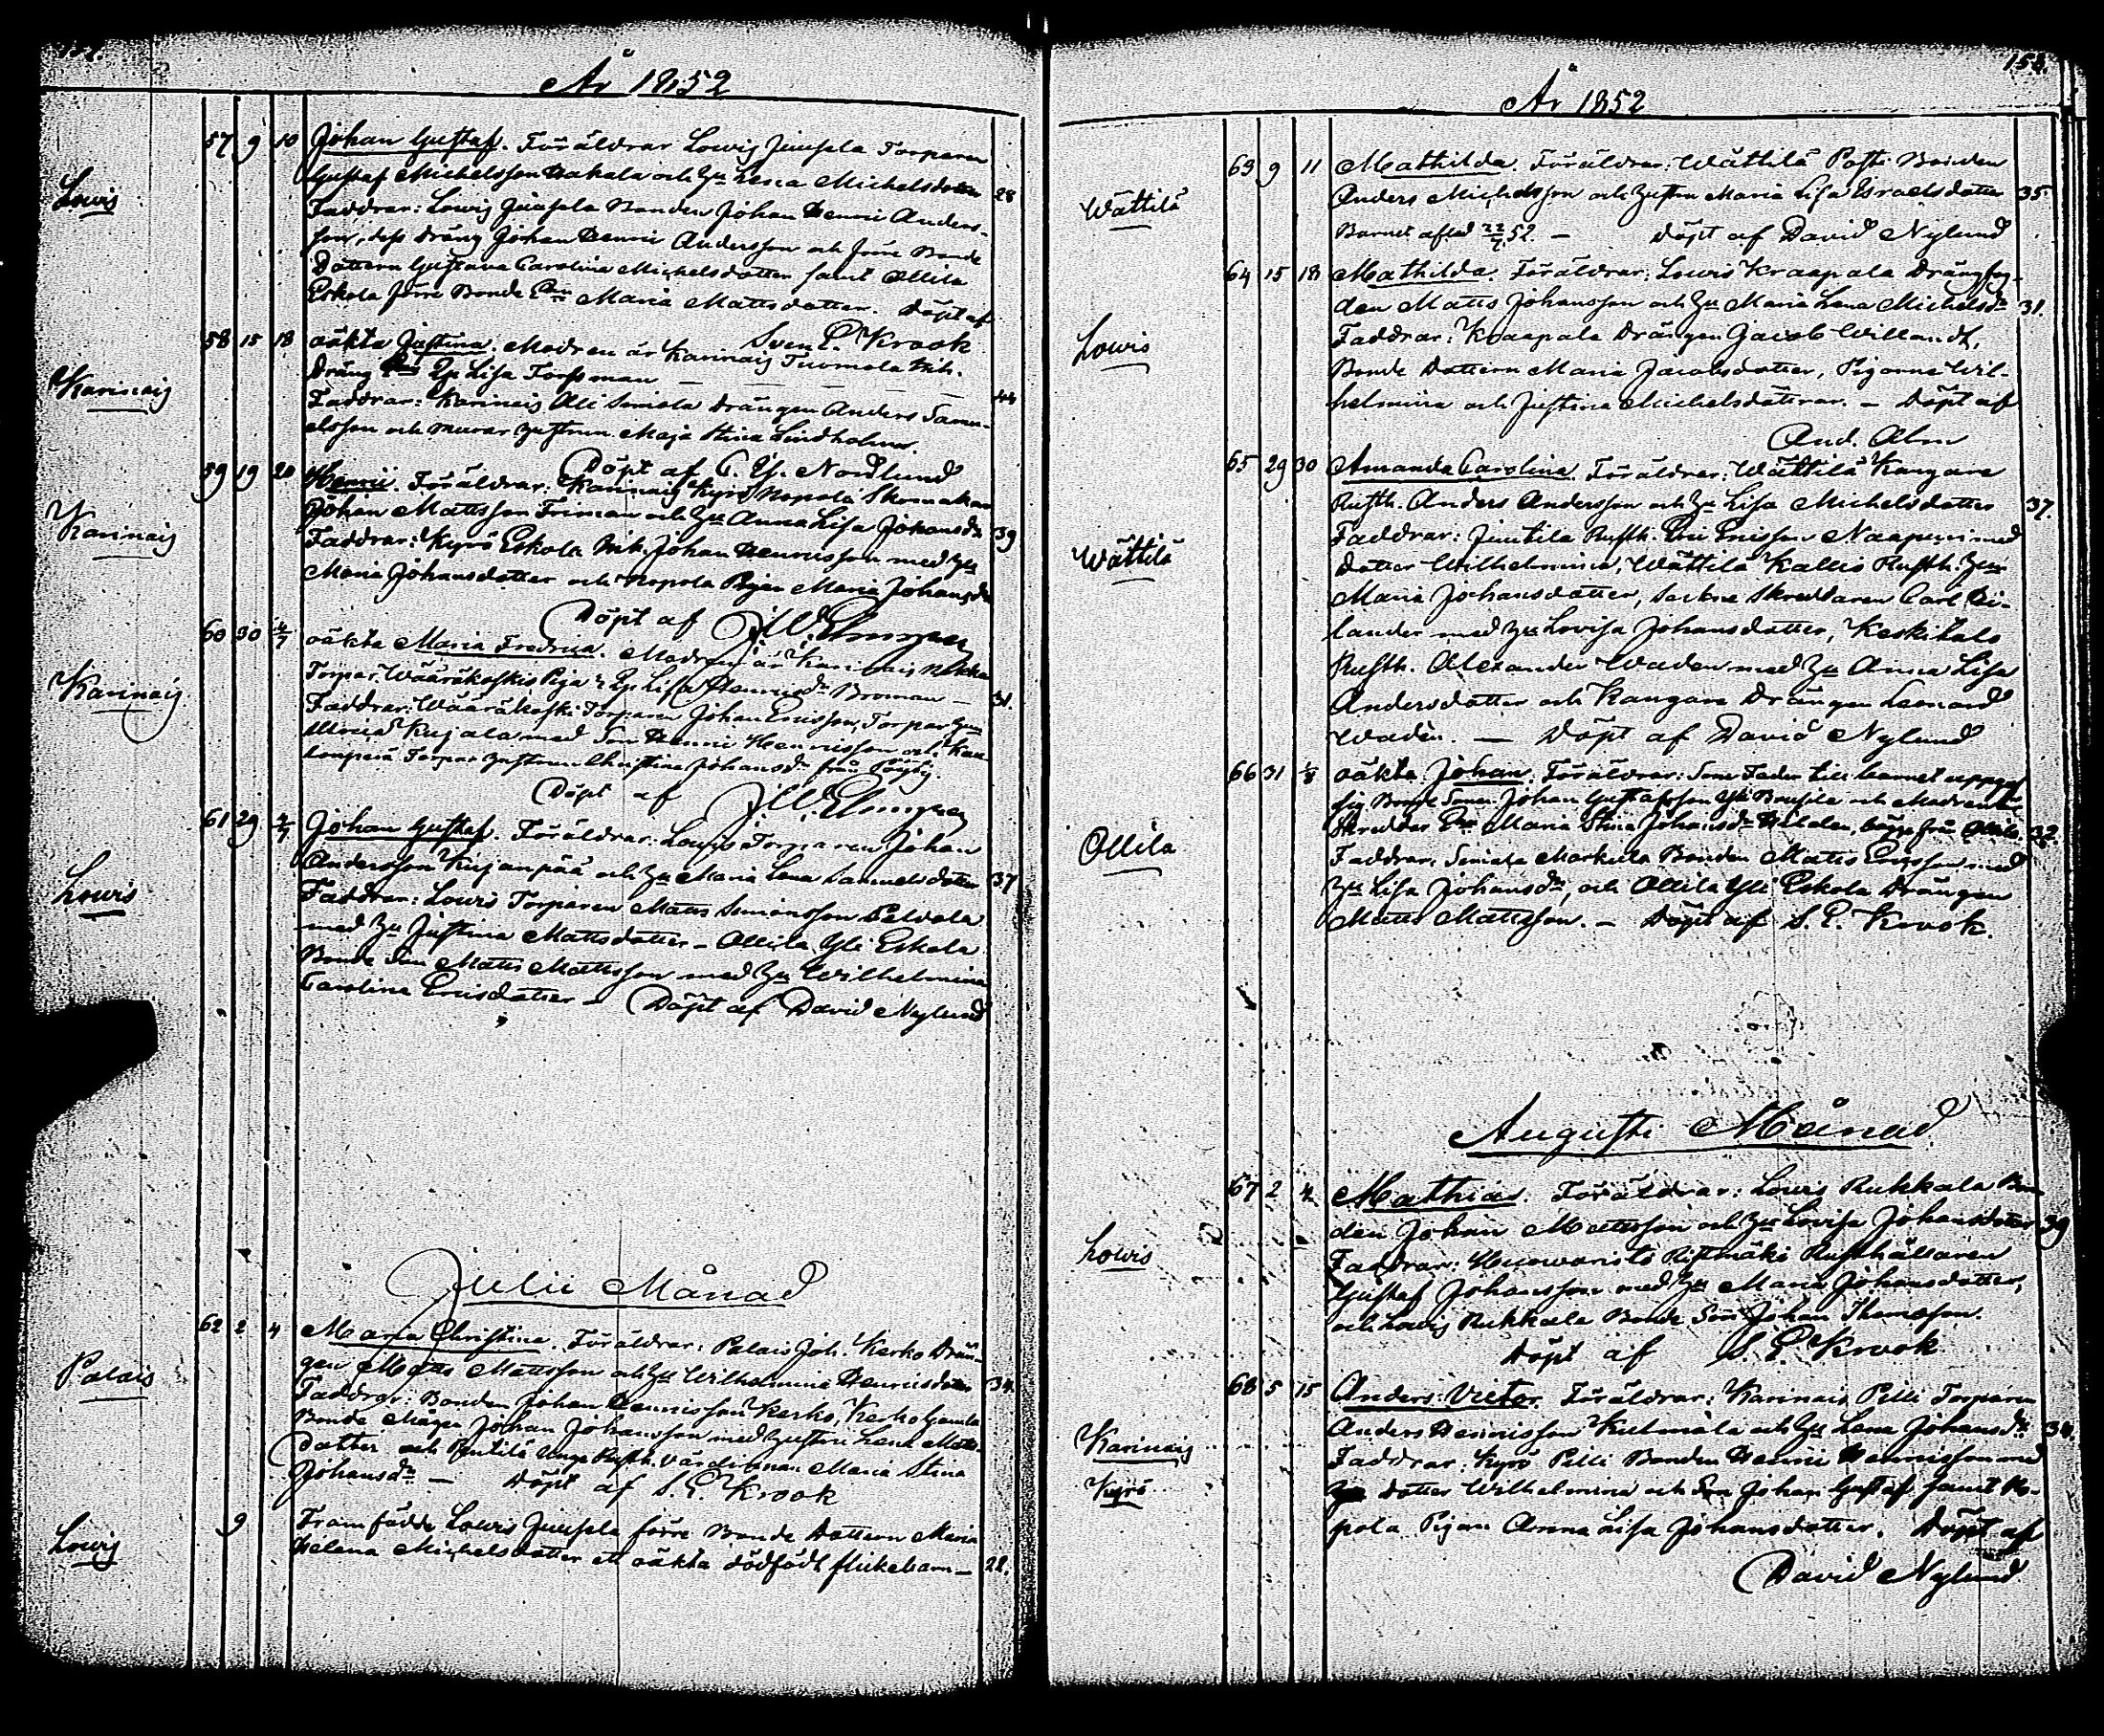 År 1852
Lowis
57 9 10 Johan Gustaf. Föräldrar Lowis Juusela Torparen
Gustaf Michelsson Hakala och Hu Lena Michelsdotter 28
Faddrar: Lowis Juusela Bonden Johan Henric Anders-
son, dess Dräng Johan Henric Andersson och förre Bonde
Dottern Gustava Carolina Michelsdotter samt Ollila
Eskola förre Bonde Maria Mattsdotter. Döpt af
Sven E. Krook
Karinais
58 15 18 oäkta Justina. Modren är Karinais Tuomola Inh.
Dräng Lisa Torssman 44
Faddrar: Karinais Ali Simola Drängen Anders Samu-
elsson och murar hustrun Maja Stina Lindholm.
Döpt af Nordlund
Karinais
59 19 20 Henric. Föräldrar: Karinais Kyrö Nopola Skomakare
Johan Mattsson Friman och Hu Anna Lisa Johansdr 39
Faddrar: Kyrö Eskola Inh. Johan Henricsson med Hu
Maria Johansdotter och Nopola Pigan Maria Johansdr
Döpt af
Karinais
60 30 4/7 oäkta Maria Fredrica. Modren är Karinais
Torpar Wääräkoskis Piga Lisa Henricsdr Broman 31.
Faddrar: Wääräkoski Torparen Johan Ericsson, Torpar
Kujala med Son Henric Henricsson och
Torpar hustrun Christina Johansdr från Pöytis.
Döpt af
Lowis
61 29 2/7 Johan Gustaf. Föräldrar: Lowis Torparen Johan
Andersson Kujanpää och Hu Maria Lena Samuelsdotter 37
Faddrar: Lowis Torparen Matts Simonsson Palvala
med Hu Justina Mattsdotter – Ollila Yli Eskola
Bonde Son Matts Mattsson med Hu Wilhelmina
Carolina Ericsdotter – Döpt af David Nylund
Julii Månad
Palais
62 2 4 Maria Christina. Föräldrar: Palais Joh. Kerko Drän-
gen Matts Mattsson och Hu Wilhelmina Henricsdotter 34.
Faddrar: Bonden Johan Henricsson Kerko, Kerko Gamla
Bonde Mågen Johan Johansson med Hustru Lena Matts-
dotter och Pentilä Unga Rusth. värdinnan Maria Stina
Johansdr – Döpt af S. E. Krook
Lowis
9 Framfödde Lowis Juusela förre Bonde Dottern Maria
Helena Michelsdotter ett oäkta dödfödt flickebarn – 22.
158.
År 1852
Wättilä
63 9 11 Mathilda. Föräldrar: Wättilä Potti Bonden
Anders Michelsson och hustrun Maria Lisa Israelsdotter 35.
Barnet afled 22/7 52. – Döpt af David Nylund
Lowis
64 15 18 Mathilda. Föräldrar: Lowis Kraapala Drängfog-
den Matts Johansson och Hu Maria Lena Michelsdr 31.
Faddrar: Kraapala Drängen Jacob Willandt,
Bonde Dottern Maria Jacobsdotter, Pigorna Wil-
helmina och Justina Michelsdöttrar. – Döpt af
And. Alm
Wättilä
65 29 30 Amanda Carolina. Föräldrar: Wättilä Kangare
Rusth. Anders Andersson och Hu Lisa Michelsdotter 37.
Faddrar: Juntila Rusth. Eric Ericsson Naapuri med
dotter Wilhelmina, Wättilä Kallis Rusth. Hun
Maria Johansdotter, Sockne Skreddaren Carl Bi-
lander med Hu Lovisa Johansdotter, Keskitalo
Rusth. Alexander Waden med Hu Anna Lisa
Andersdotter och Kangare Drängen Leonard
Waden. – Döpt af David Nylund
Ollila
66 31 1/8 oäkta Johan. Föräldrar: Som Fader till barnet uppgef
sig Bonde Sonen Johan Gustafsson Yli Bousila och Modren
Skreddar Maria Stina Johansdr Helelen, bägge från Ollila 32.
Faddrar: Simala Markula Bonden Matts Ericsson med
Hu Lisa Johansdr, och Ollila Yli Eskola Drängen
Matts Mattsson. – Döpt af S. E. Krook.
Augusti Månad
Lowis
67 2 4 Mathias. Föräldrar: Lowis Rukkala Bon-
den Johan Mattsson och Hu Lovisa Johansdotter 39
Faddrar: Huowaristo Ristimäki Rusthållaren
Gustaf Johansson med Hu Maria Johansdotter,
och Lowis Rukkala Bonde Son Johan Thomasson.
Döpt af S. E. Krook
Karinais
Kyrö
68 5 15 Anders Victor. Föräldrar: Karinais Pilli Torparen
Anders Henricsson Kulmala och Hu Lena Johansdr 34.
Faddrar: Kyrö Pilli Bonden Henric Henricsson med
dotter Wilhelmina och Son Johan Gustaf samt No-
pola Pigan Anna Lisa Johansdotter. Döpt af
David Nylund